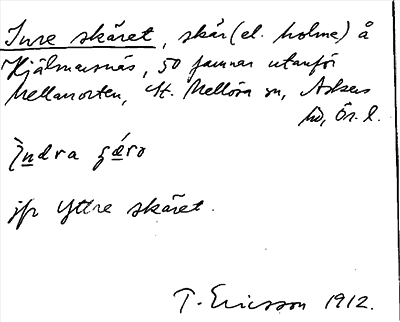 Inre skäret, skär (el. holme) å
Hjälmarsnäs, 50 famnar utanför
Mellanorten, St. Mellösa sn, Askers
hd, Ör. l.
jfr Yttre skäret.
T. Ericsson 1912.